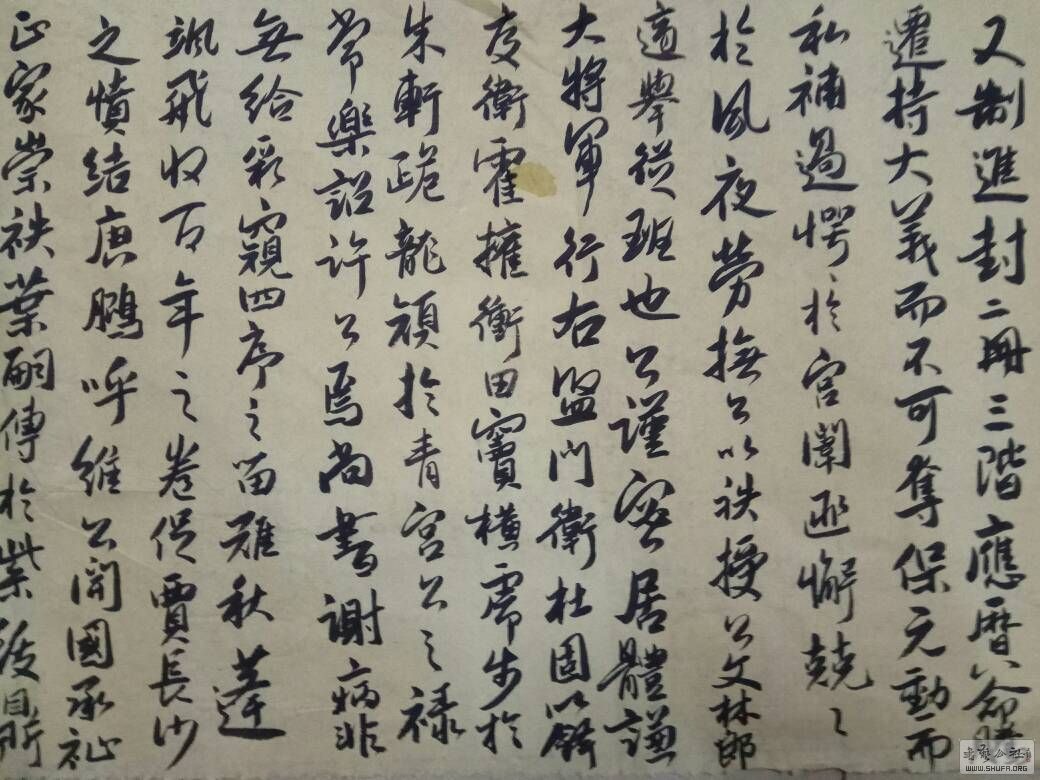 又制進封二冊三階應曆公命
遷持大義而不可奪保元勳而
私補過愕於宮闈匪懈兢〻
於夙夜勞撫公以秩授公文林郎
適舉從班也公謹密居體謙
大將軍行右監門衛杜固以
友衛霍擁衝田竇橫虎步於
朱軒跪龍顏於青宮公之祿
常樂詔許公焉尚書謝病非
無給彩窺四序之留雖秋蓬
颯飛收百年之卷促賈長沙
之憤結庚鵬呼維公開國承祉
正家崇秩葉嗣傳於紫
WWW.SHUFA.ORG